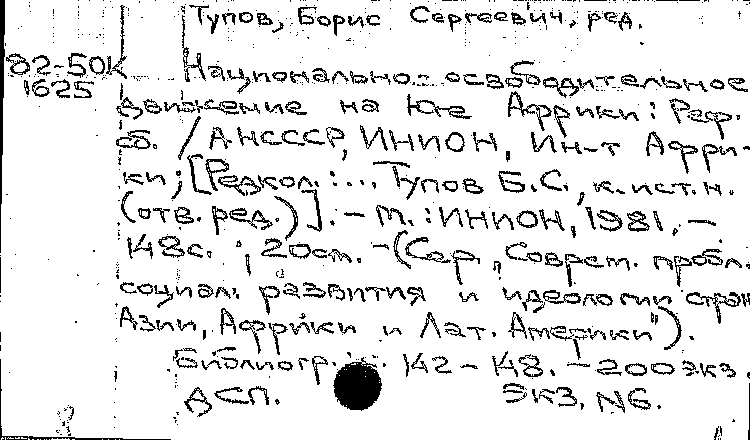 Тупов, Борис Сергеевич, ред.
82-50К
1625
Национально-освободительное
движение на Юге Африки: Реф.
сб. / АНСССР, ИНИОН, Ин-т Афри-
ки; [Редкол.:... Тупов Б.С., к.ист.н.
(отв. ред.)]. - М.: ИНИОН, 1981. -
148с.; 20см. - (Сер. "Соврем. пробл.
социал. развития и идеологии стран
Азии, Африки и Лат. Америки").
Библиогр.: с. 142-148. - 200экз.
ДСП. ЭКЗ. N6.